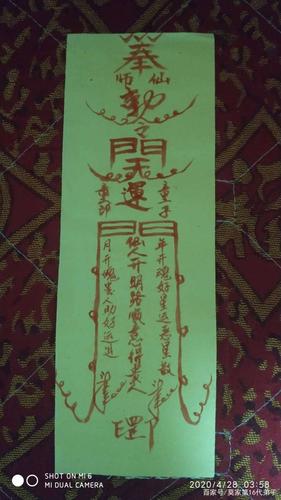 奉
仙师
勅
令
門
天
運
童子
童郎
門
年开魂好星运恶星散
仙人开明路顺意得贵人
月开魄贵人助好运进
罡
SHOT ON MI 6
MI DUAL CAMERA
2020/4/28 03:58
百家号/莫家第16代弟子